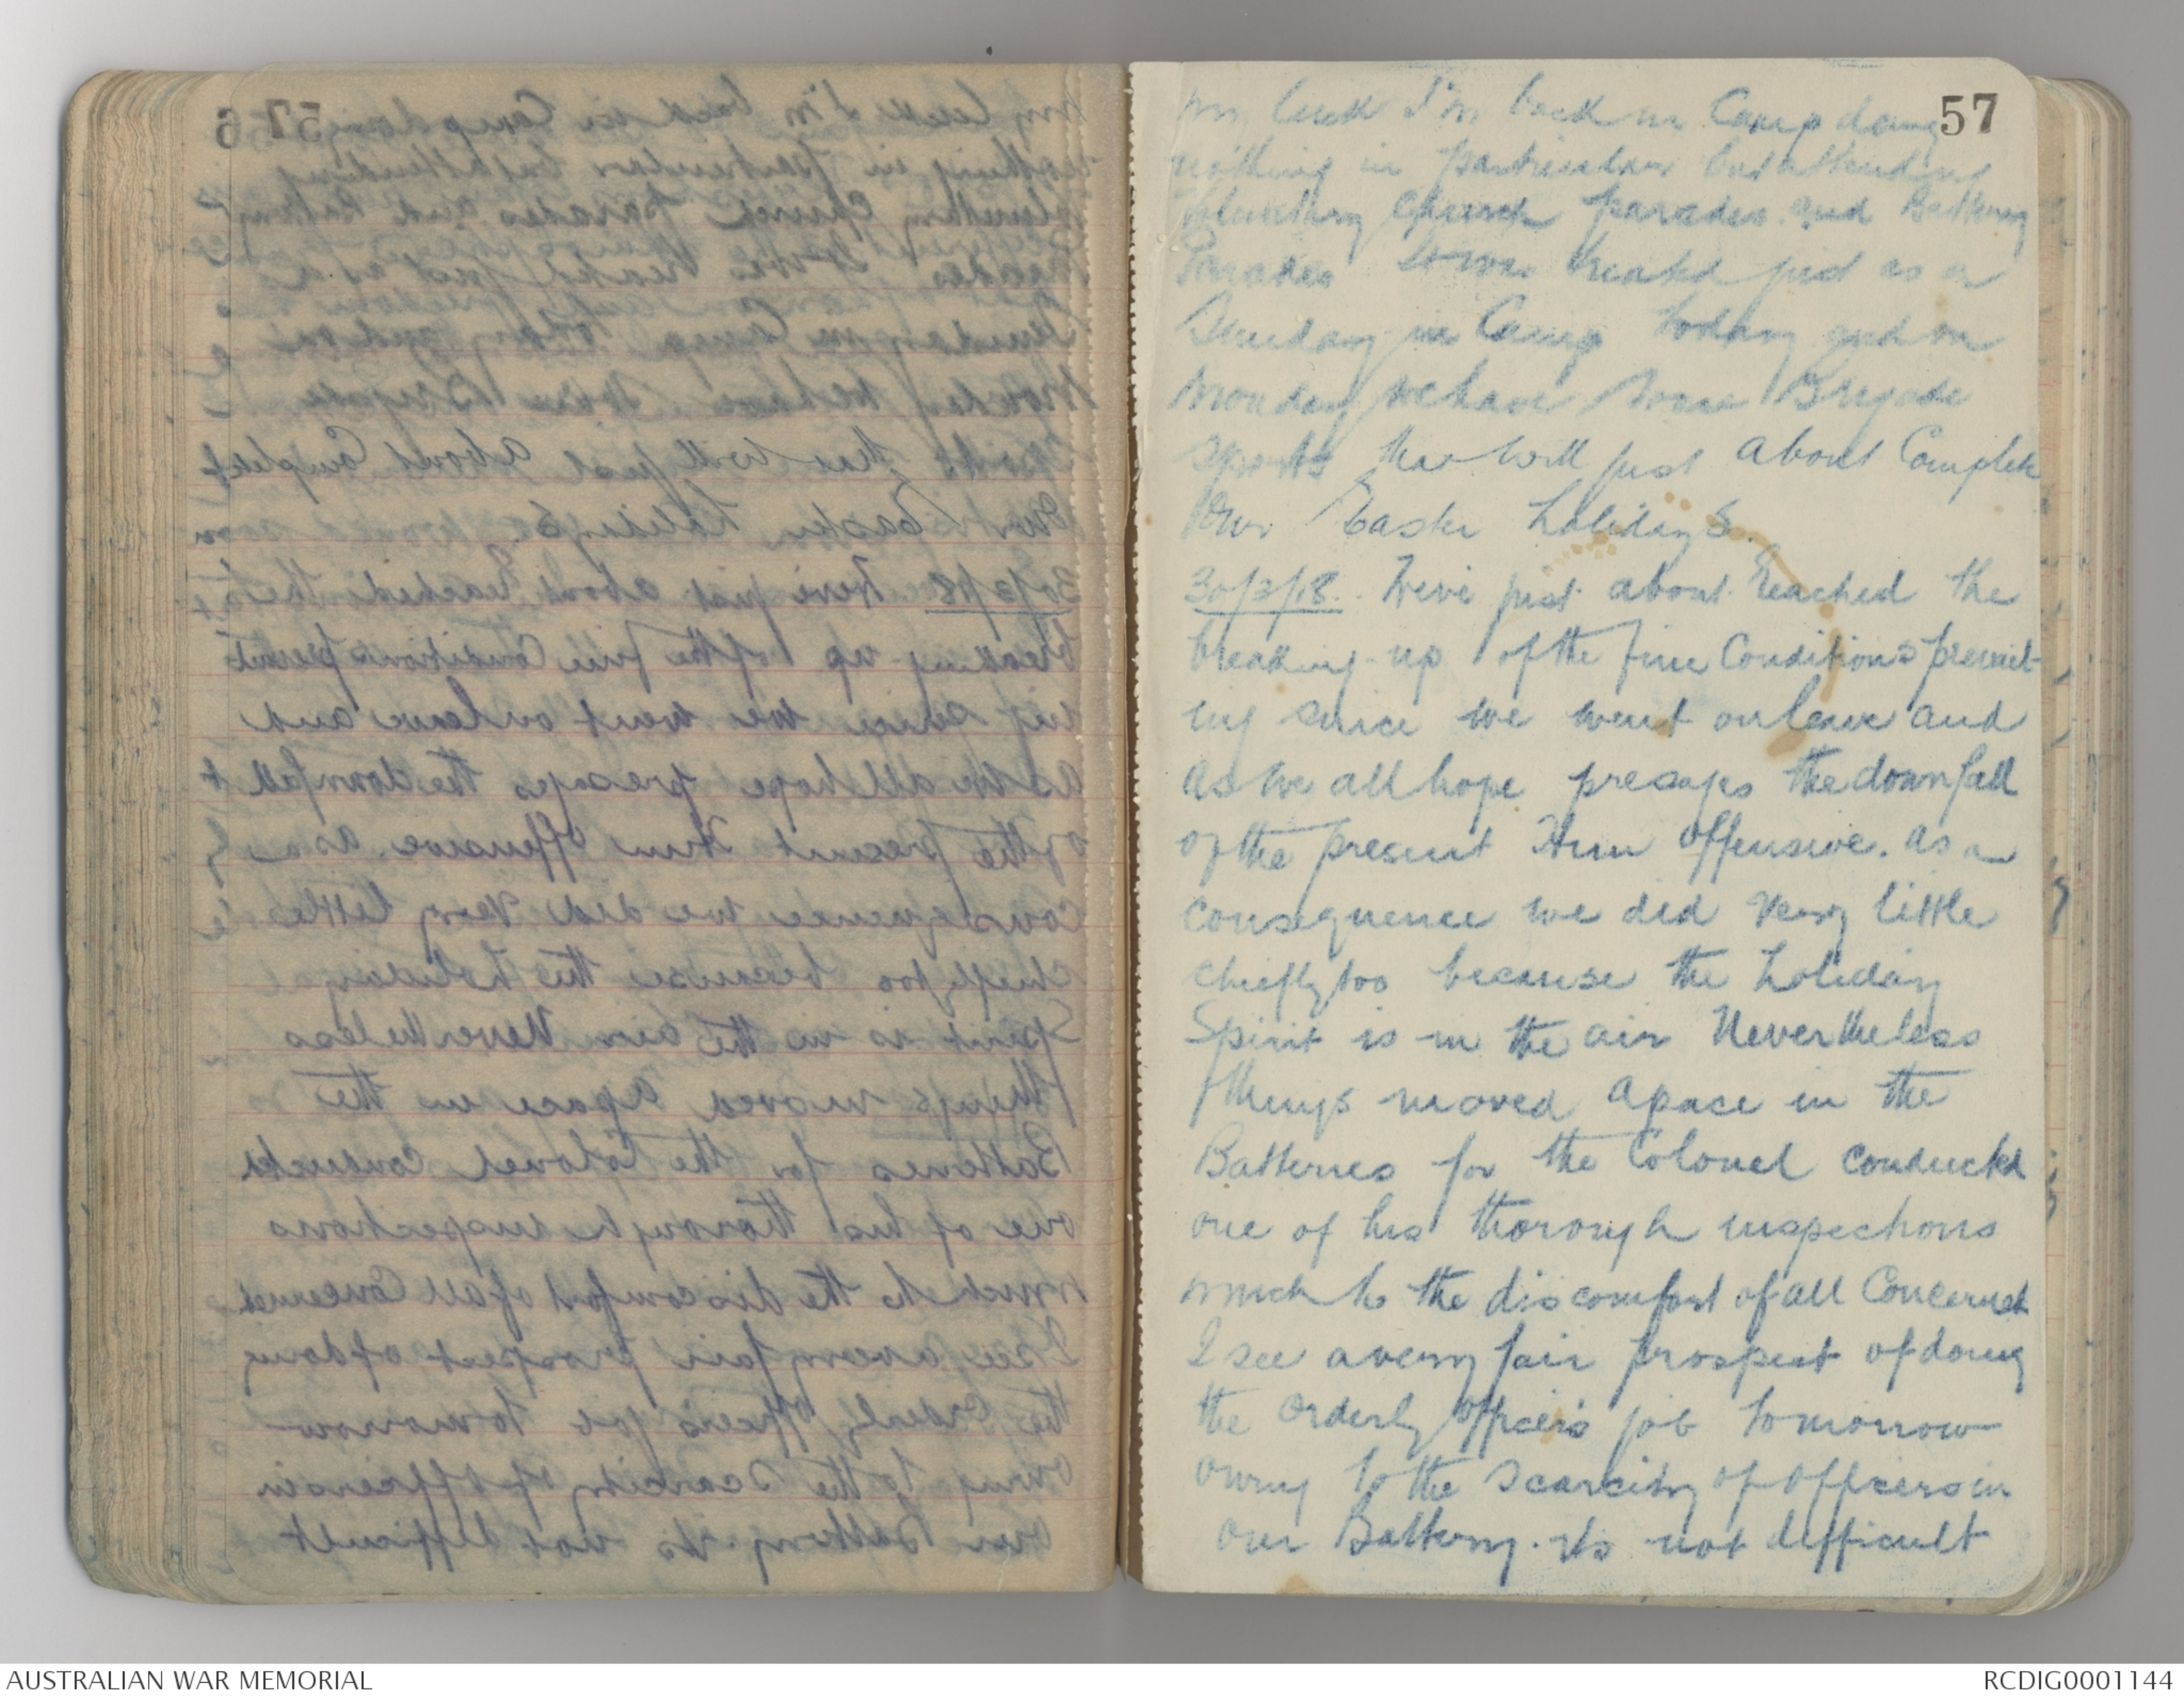 57
my luck I'm back in Camp doing
nothing in particular but attending
Voluntary Church parades and Battery
Parades its was treated just as a
Sunday in Camp today and on
Monday we have some Brigade
sports that will just about Complete
our Easter holidays.
30/3/18. We've just about reached the
breaking-up of the fine Conditions permit-
ing since we went on leave and
as we all hope presages the downfall
of the present Hun offensive. as a
consequence we did very little
chiefly too because the holiday
Spirit is in the air Nevertheless
things moved apace in the
Batteries for the Colonel conducted
one of his thorough inspections
much to the discomfort of all Concerned
I see a very fair prospect of doing
the Orderly officer's job tomorrow
owing to the scarcity of officers in
our Battery. its not difficult
AUSTRALIAN WAR MEMORIAL
RCDIG0001144